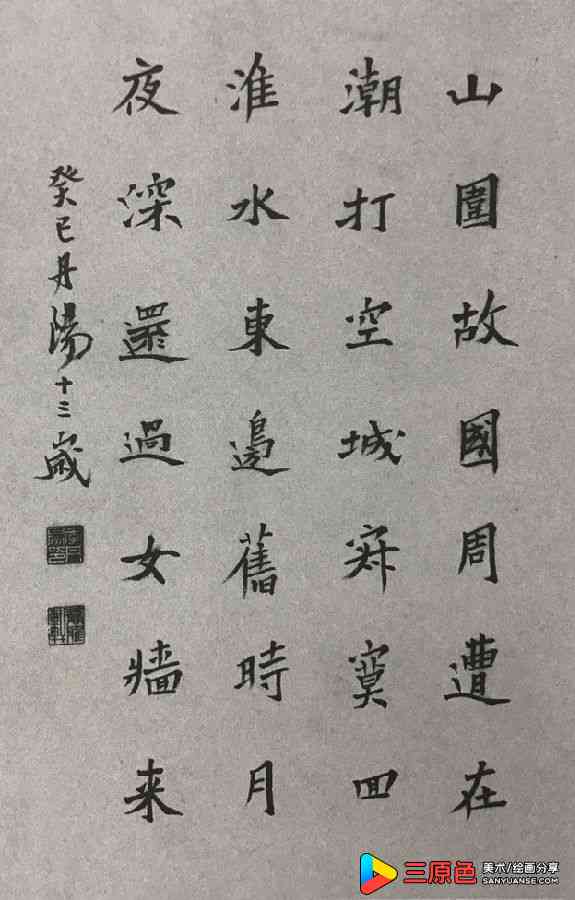 山圍故國周遭在
潮打空城寂寞回
淮水東邊舊時月
夜深還過女墻来
癸巳丹陽十三歲
三原色
美术/绘画分享
SANYUANSE.COM